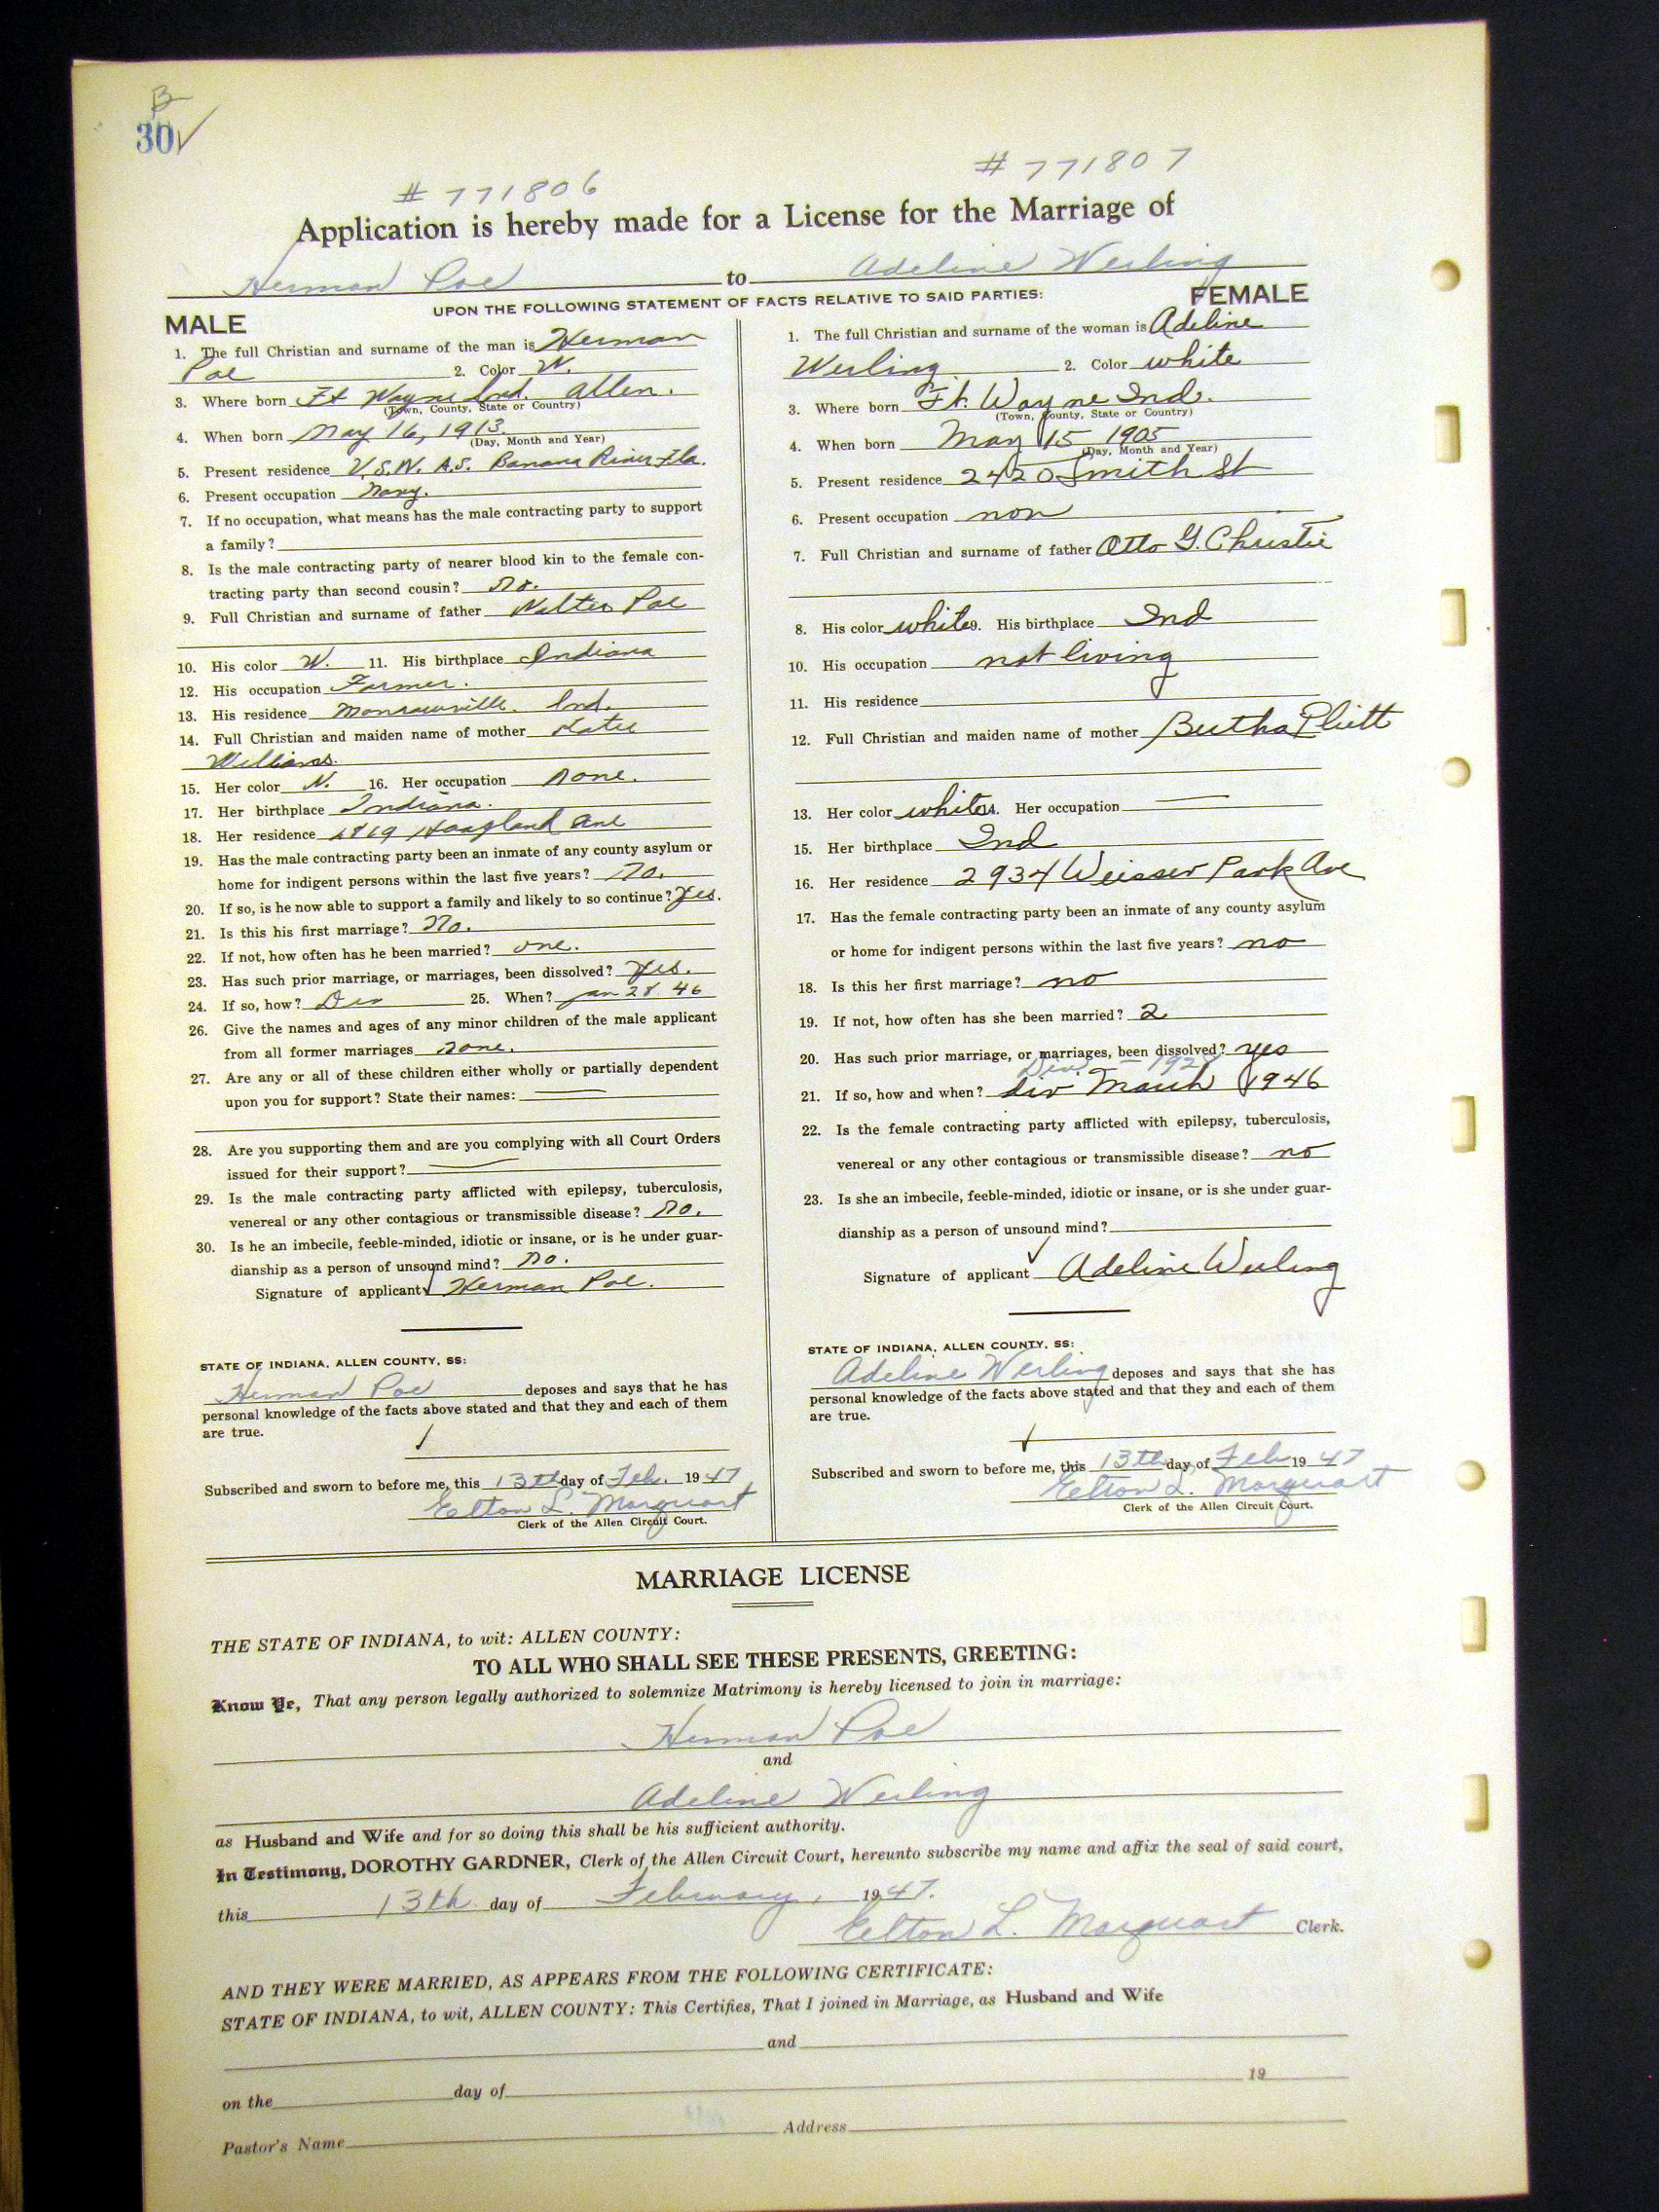 B
30 ✓
# 771806
# 771807
Application is hereby made for a License for the Marriage of
Herman Poe to Adeline Werling
UPON THE FOLLOWING STATEMENT OF FACTS RELATIVE TO SAID PARTIES:
MALE
1. The full Christian and surname of the man is Herman
Poe 2. Color W.
3. Where born Ft Wayne Ind. Allen.
(Town, County, State or Country)
4. When born May 16, 1913.
(Day, Month and Year)
5. Present residence U.S.N. A.S. Banana River Fla.
6. Present occupation Navy.
7. If no occupation, what means has the male contracting party to support
a family?
8. Is the male contracting party of nearer blood kin to the female con-
tracting party than second cousin? No.
9. Full Christian and surname of father Walter Poe
10. His color W. 11. His birthplace Indiana
12. His occupation Farmer.
13. His residence Monroeville. Ind.
14. Full Christian and maiden name of mother
Williams.
15. Her color W. 16. Her occupation None.
17. Her birthplace Indiana.
18. Her residence 1819 Hoagland Ave
19. Has the male contracting party been an inmate of any county asylum or
home for indigent persons within the last five years? No.
20. If so, is he now able to support a family and likely to so continue? Yes.
21. Is this his first marriage? No.
22. If not, how often has he been married? one.
23. Has such prior marriage, or marriages, been dissolved? Yes.
24. If so, how? Div 25. When? Jan 28. 46
26. Give the names and ages of any minor children of the male applicant
from all former marriages None.
27. Are any or all of these children either wholly or partially dependent
upon you for support? State their names: —
28. Are you supporting them and are you complying with all Court Orders
issued for their support? —
29. Is the male contracting party afflicted with epilepsy, tuberculosis,
venereal or any other contagious or transmissible disease? No.
30. Is he an imbecile, feeble-minded, idiotic or insane, or is he under guar-
dianship as a person of unsound mind? No.
Signature of applicant Herman Poe.
STATE OF INDIANA, ALLEN COUNTY, SS:
Herman Poe deposes and says that he has
personal knowledge of the facts above stated and that they and each of them
are true.
Subscribed and sworn to before me, this 13th day of Feb. 1947
Elton L. Marquart
Clerk of the Allen Circuit Court.
FEMALE
1. The full Christian and surname of the woman is Adeline
Werling 2. Color white
3. Where born Ft. Wayne Ind.
(Town, County, State or Country)
4. When born May 15 1905
(Day, Month and Year)
5. Present residence 2420 Smith St
6. Present occupation non
7. Full Christian and surname of father Otto G. Christie
8. His color white 9. His birthplace Ind
10. His occupation not living
11. His residence
12. Full Christian and maiden name of mother Bertha Pliett
13. Her color white 14. Her occupation —
15. Her birthplace Ind
16. Her residence 2934 Weisser Park Ave
17. Has the female contracting party been an inmate of any county asylum
or home for indigent persons within the last five years? no
18. Is this her first marriage? no
19. If not, how often has she been married? 2
20. Has such prior marriage, or marriages, been dissolved? yes
Div. — 1928
21. If so, how and when? div March 1946
22. Is the female contracting party afflicted with epilepsy, tuberculosis,
venereal or any other contagious or transmissible disease? no
23. Is she an imbecile, feeble-minded, idiotic or insane, or is she under guar-
dianship as a person of unsound mind?
Signature of applicant Adeline Werling
STATE OF INDIANA, ALLEN COUNTY, SS:
Adeline Werling deposes and says that she has
personal knowledge of the facts above stated and that they and each of them
are true.
Subscribed and sworn to before me, this 13th day of Feb 1947
Elton L. Marquart
Clerk of the Allen Circuit Court.
MARRIAGE LICENSE
THE STATE OF INDIANA, to wit: ALLEN COUNTY:
TO ALL WHO SHALL SEE THESE PRESENTS, GREETING:
Know Ye, That any person legally authorized to solemnize Matrimony is hereby licensed to join in marriage:
Herman Poe
and
Adeline Werling
as Husband and Wife and for so doing this shall be his sufficient authority.
In Testimony, DOROTHY GARDNER, Clerk of the Allen Circuit Court, hereunto subscribe my name and affix the seal of said court,
this 13th day of February, 1947.
Elton L. Marquart Clerk.
AND THEY WERE MARRIED, AS APPEARS FROM THE FOLLOWING CERTIFICATE:
STATE OF INDIANA, to wit, ALLEN COUNTY: This Certifies, That I joined in Marriage, as Husband and Wife
and
on the day of 19
Pastor's Name Address